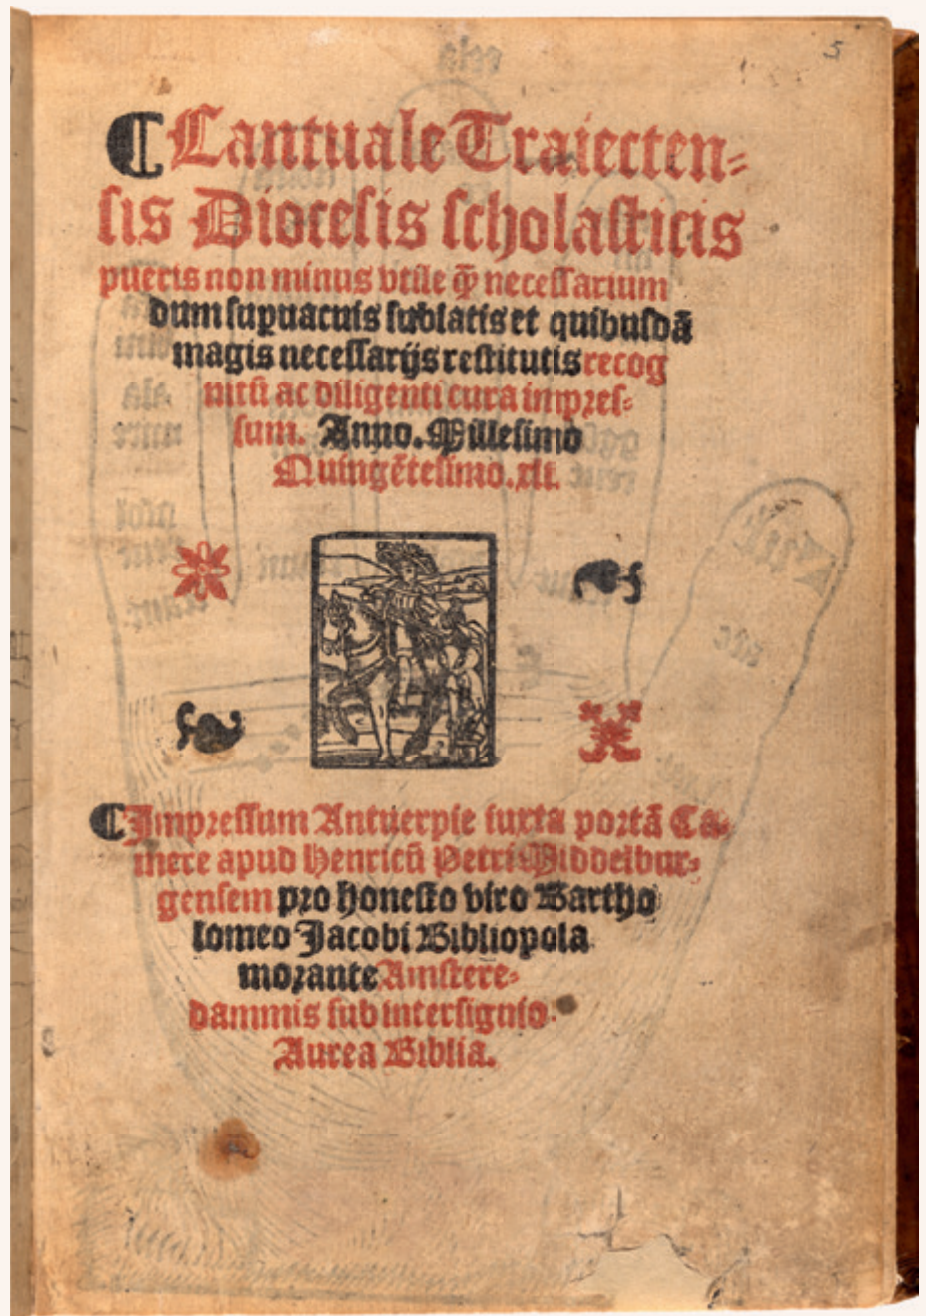 5
¶ Cantuale Traiecten⸗
sis Diocesis scholasticis
pueris non minus vtile q̃ necessarium
dum supuacuis sublatis et quibusdã
magis necessarijs restitutis recog
nitũ ac diligenti cura impres⸗
sum. Anno. Millesimo
Quingẽtesimo. xli.
¶ Impressum Antuerpie iuxta portã Ca⸗
mere apud Henricũ Petri Middelbur⸗
gensem pro honesto viro Bartho
lomeo Jacobi Bibliopola
morante Amstere⸗
dammis sub intersignio.
Aurea Biblia.